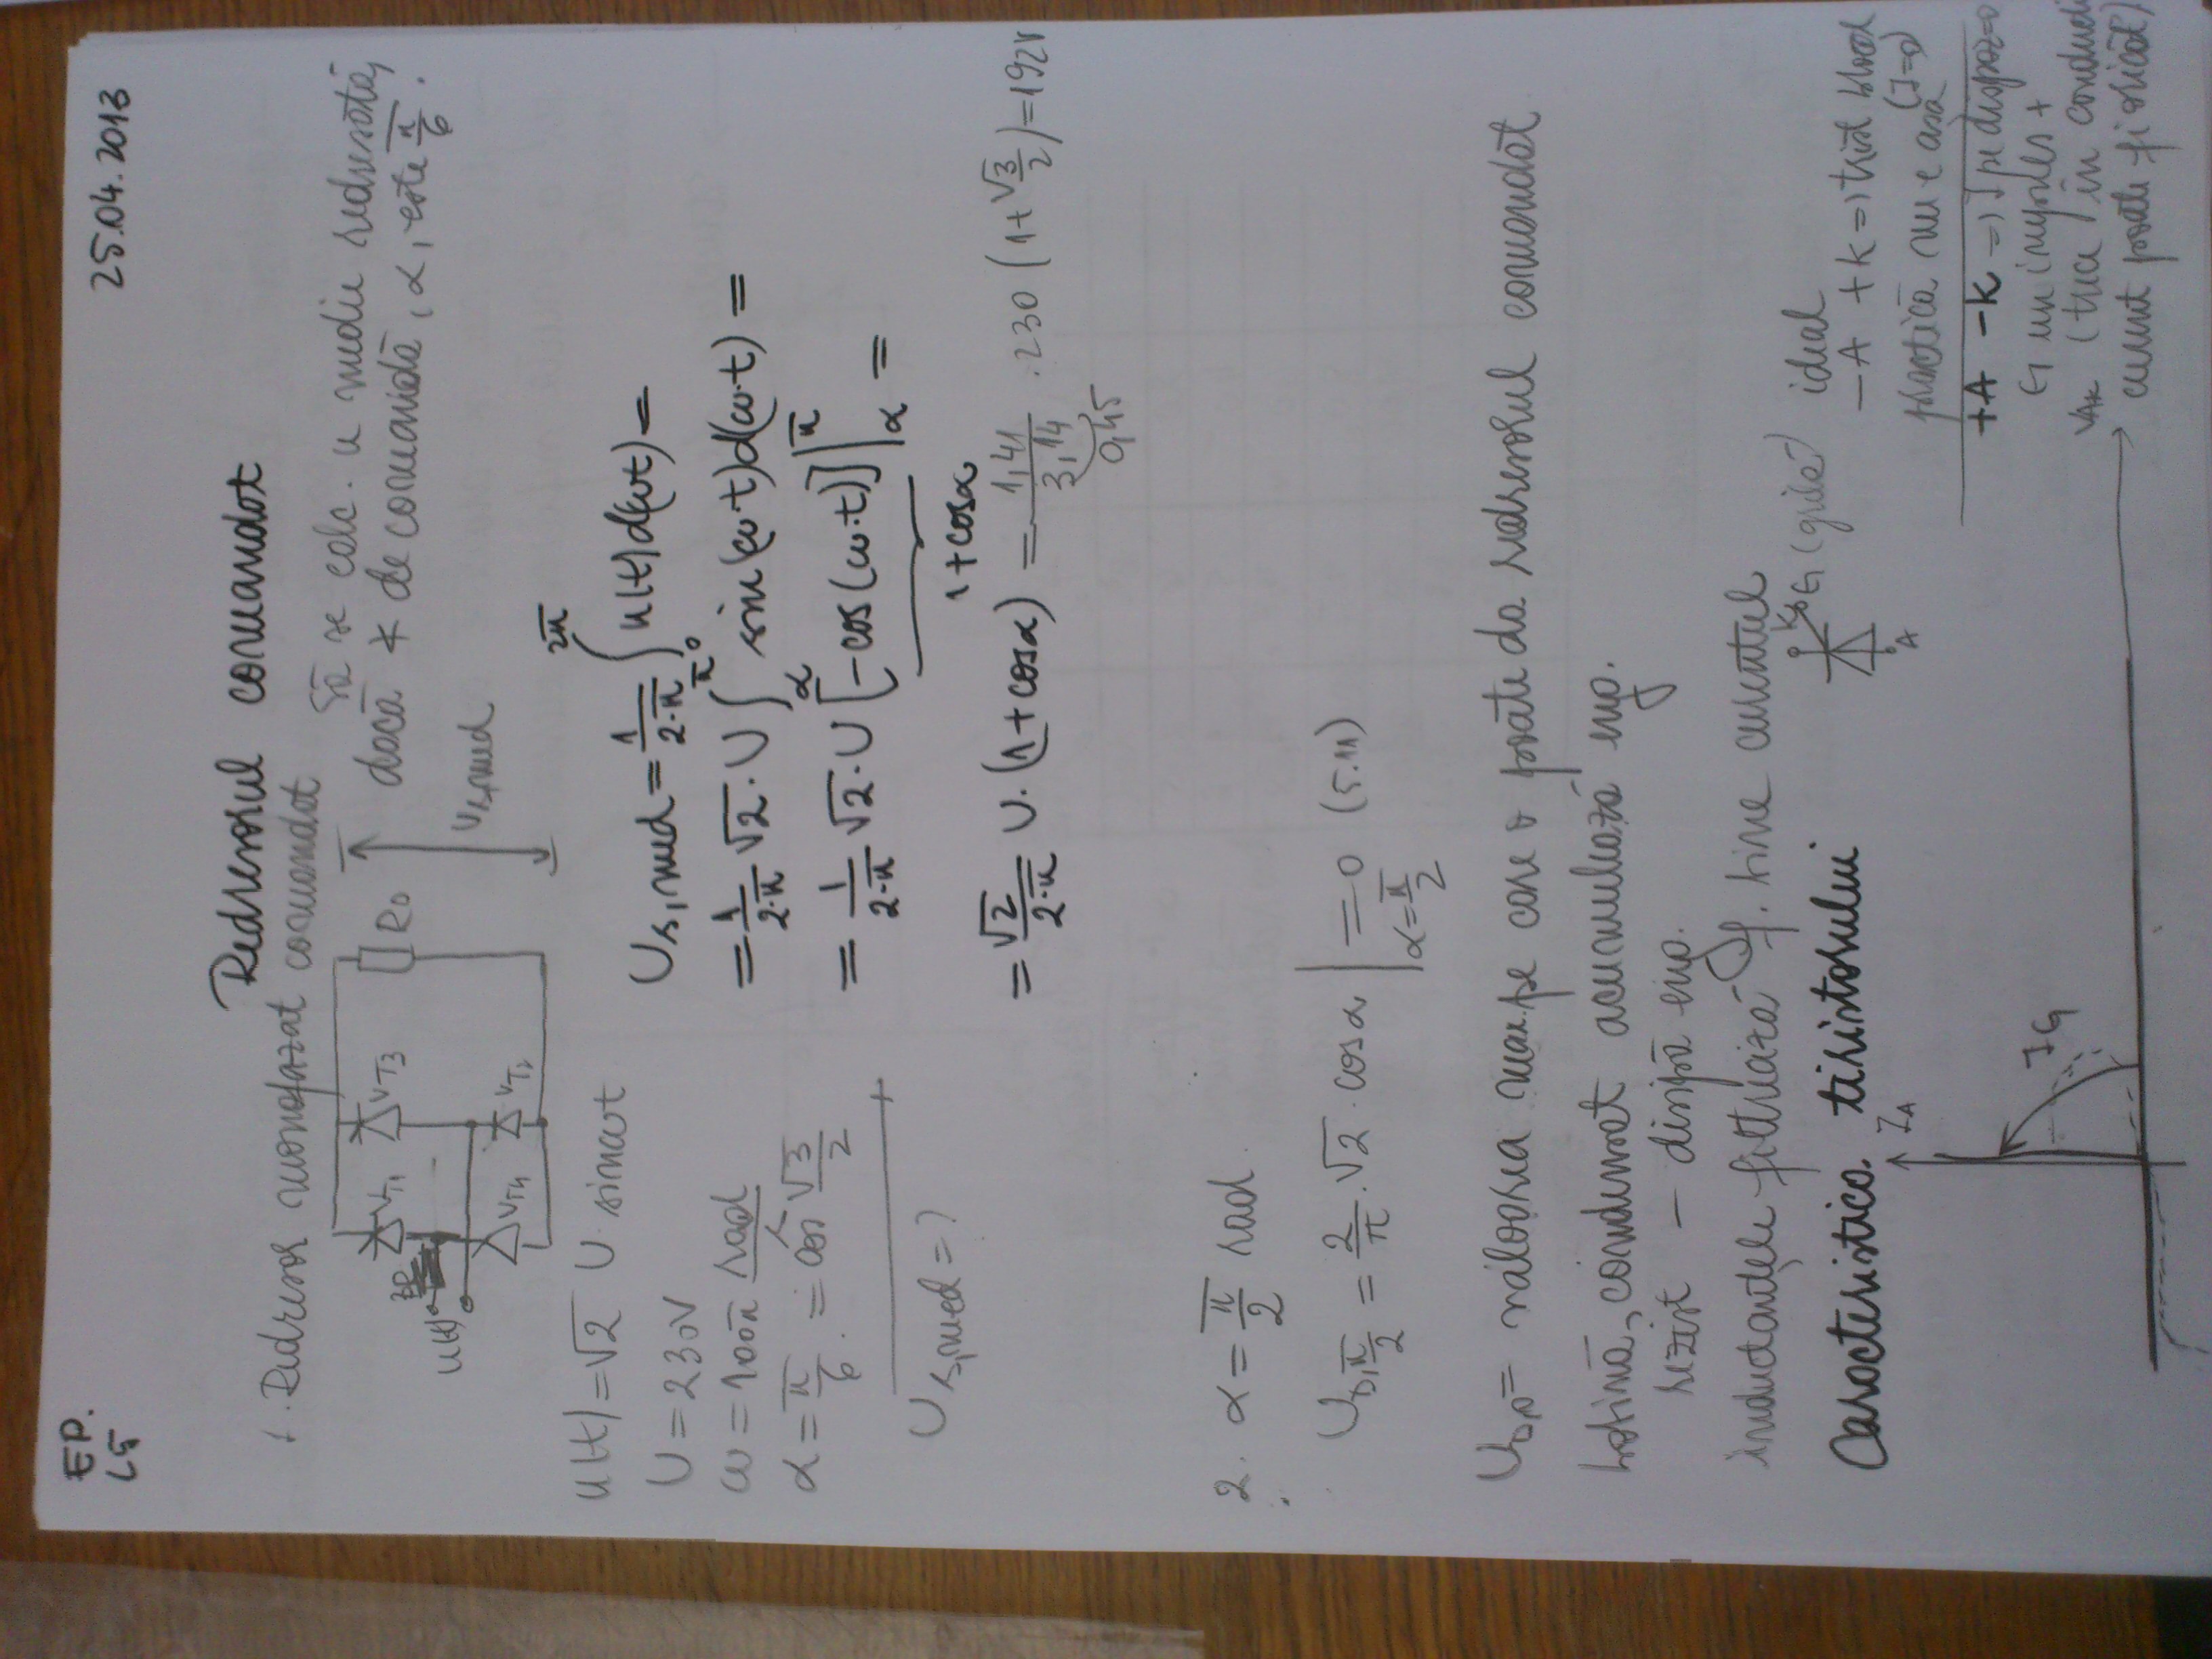 EP.
L5
25.04.2013
Redresorul comandat
1. Redresor monofazat comandat
Să se calc. u medie redresată,
dacă ∢ de comandă, α, este π/6.
VT1
VT3
R0
Us,med
u(t)
VT4
VT2
u(t)=√2 U sinωt
U=230V
ω=100π rad
α=π/6 = cos √3/2
Us,med=?
Us,med = 1/(2·π) ∫₀^2π u(t)d(ωt) =
= 1/(2·π) √2·U ∫_α^π sin(ω·t)d(ω·t) =
= 1/(2·π) √2·U [-cos(ω·t)]|_α^π =
1+cosα
= √2/(2·π) U·(1+cosα) = 1,41/3,14 ·230 (1+√3/2)=192V
0,45
2. α=π/2 rad
U_D,π/2 = 2/π·√2·cosα |_α=π/2 =0 (5.11)
= valoarea max pe care o poate da redresorul comandat
bobină, condensat acumulează eng.
rezist - disipă eng.
inductanțele filtrează f. bine curentul
Caracteristica tiristorului
K
G (grilă)
A
ideal
-A +K => tirist blocat
practica nu e asa (I=0)
+A -K => pe dispoz=0
G un impuls +
VAK (trece în conducție
curent poate fi oricât)
IA
IG